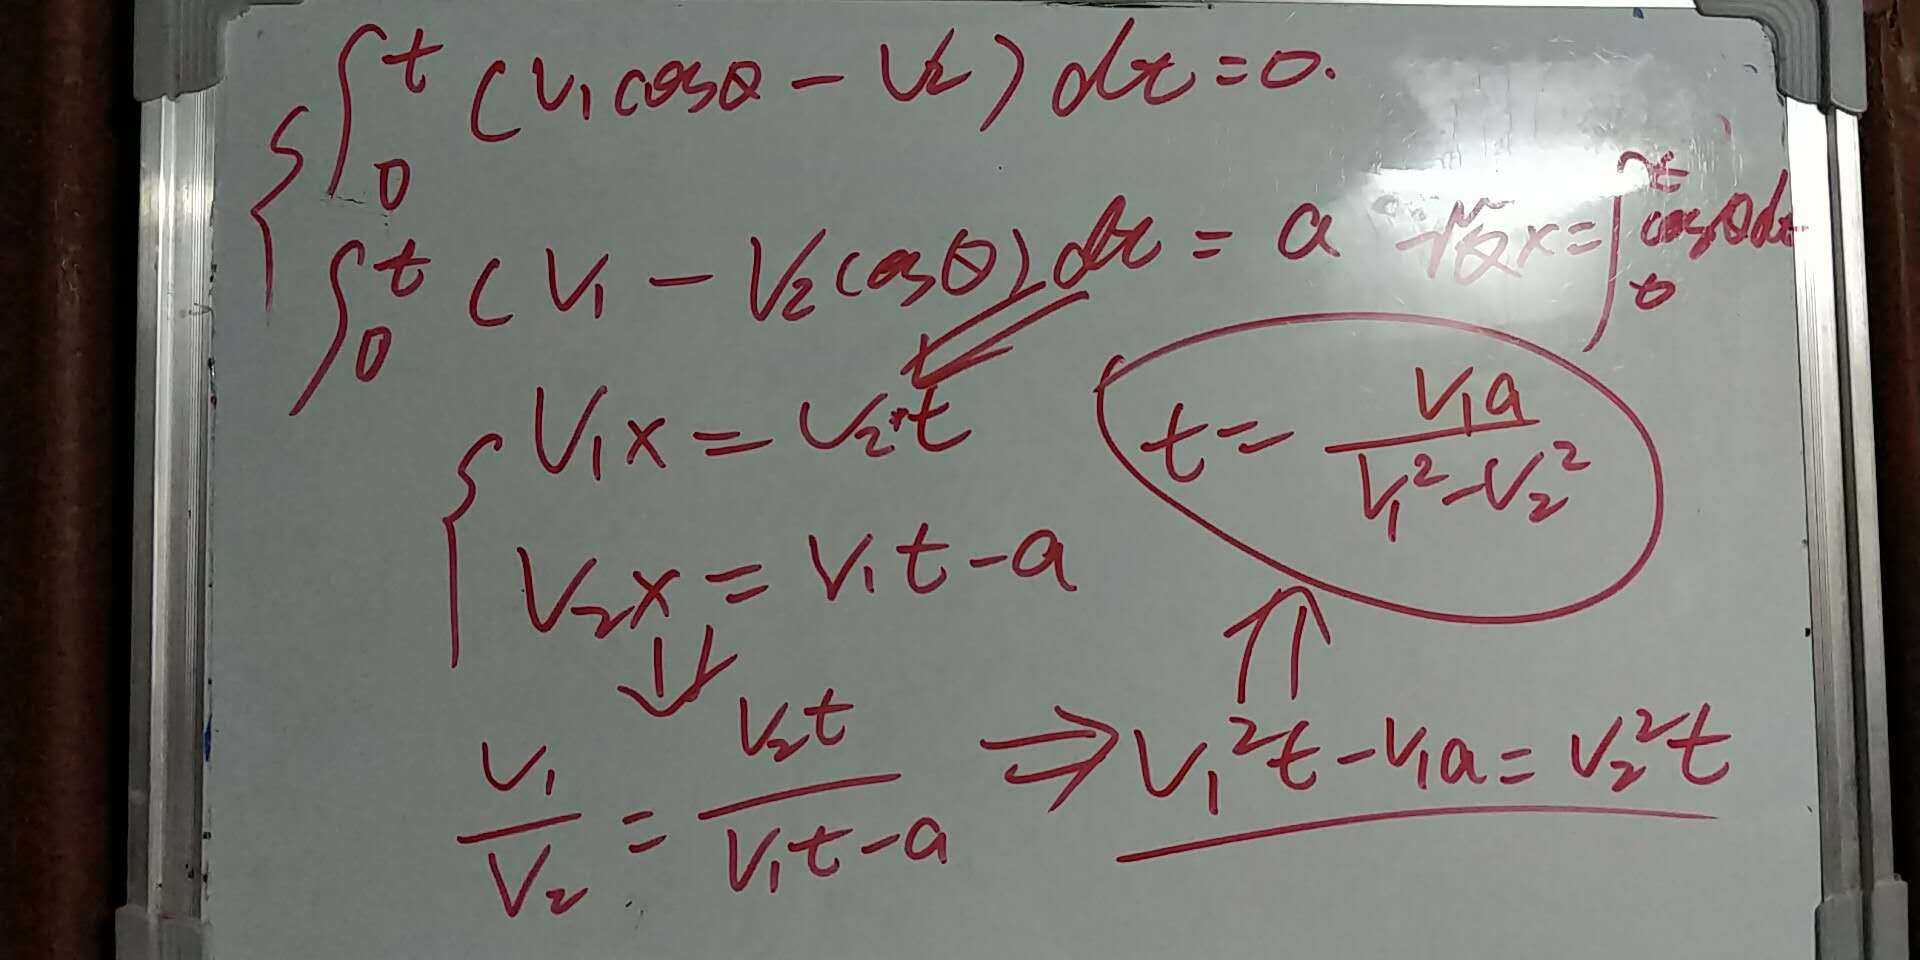 ∫₀ᵗ (V₁cosθ − V₂) dt = 0.
∫₀ᵗ (V₁ − V₂cosθ) dt = a x = ∫₀ᵗ cosθdt
V₁x = V₂·t
V₂x = V₁t − a
t = V₁a / (V₁² − V₂²)
V₁/V₂ = V₂t/(V₁t − a) ⇒ V₁²t − V₁a = V₂²t